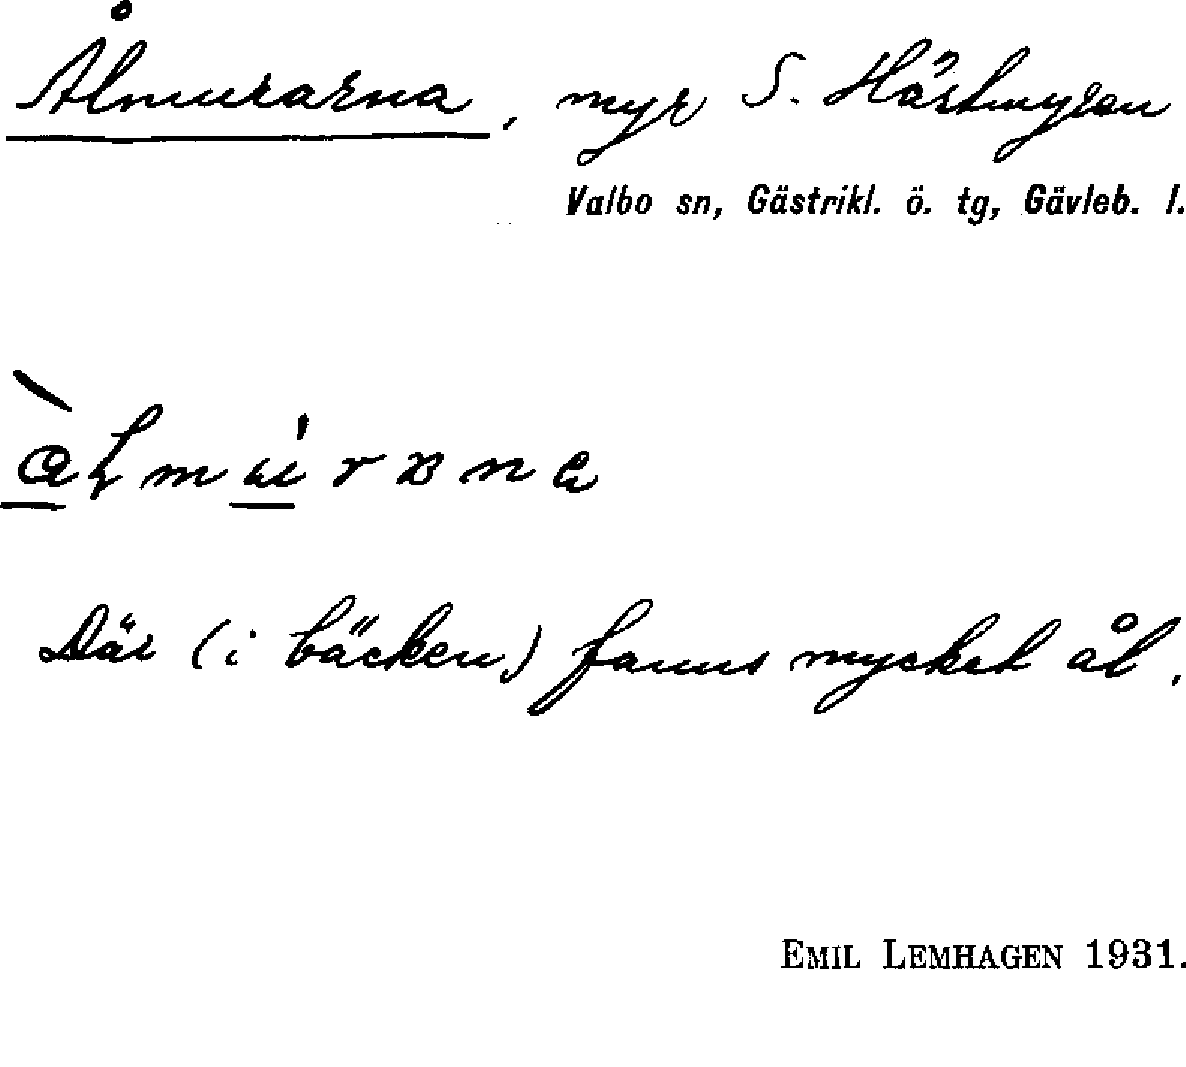 Ålmurarna, myr S. Hästmyren
Valbo sn, Gästrikl. ö. tg, Gävleb. l.
Där (i bäcken) fanns mycket ål.
EMIL LEMHAGEN 1931.